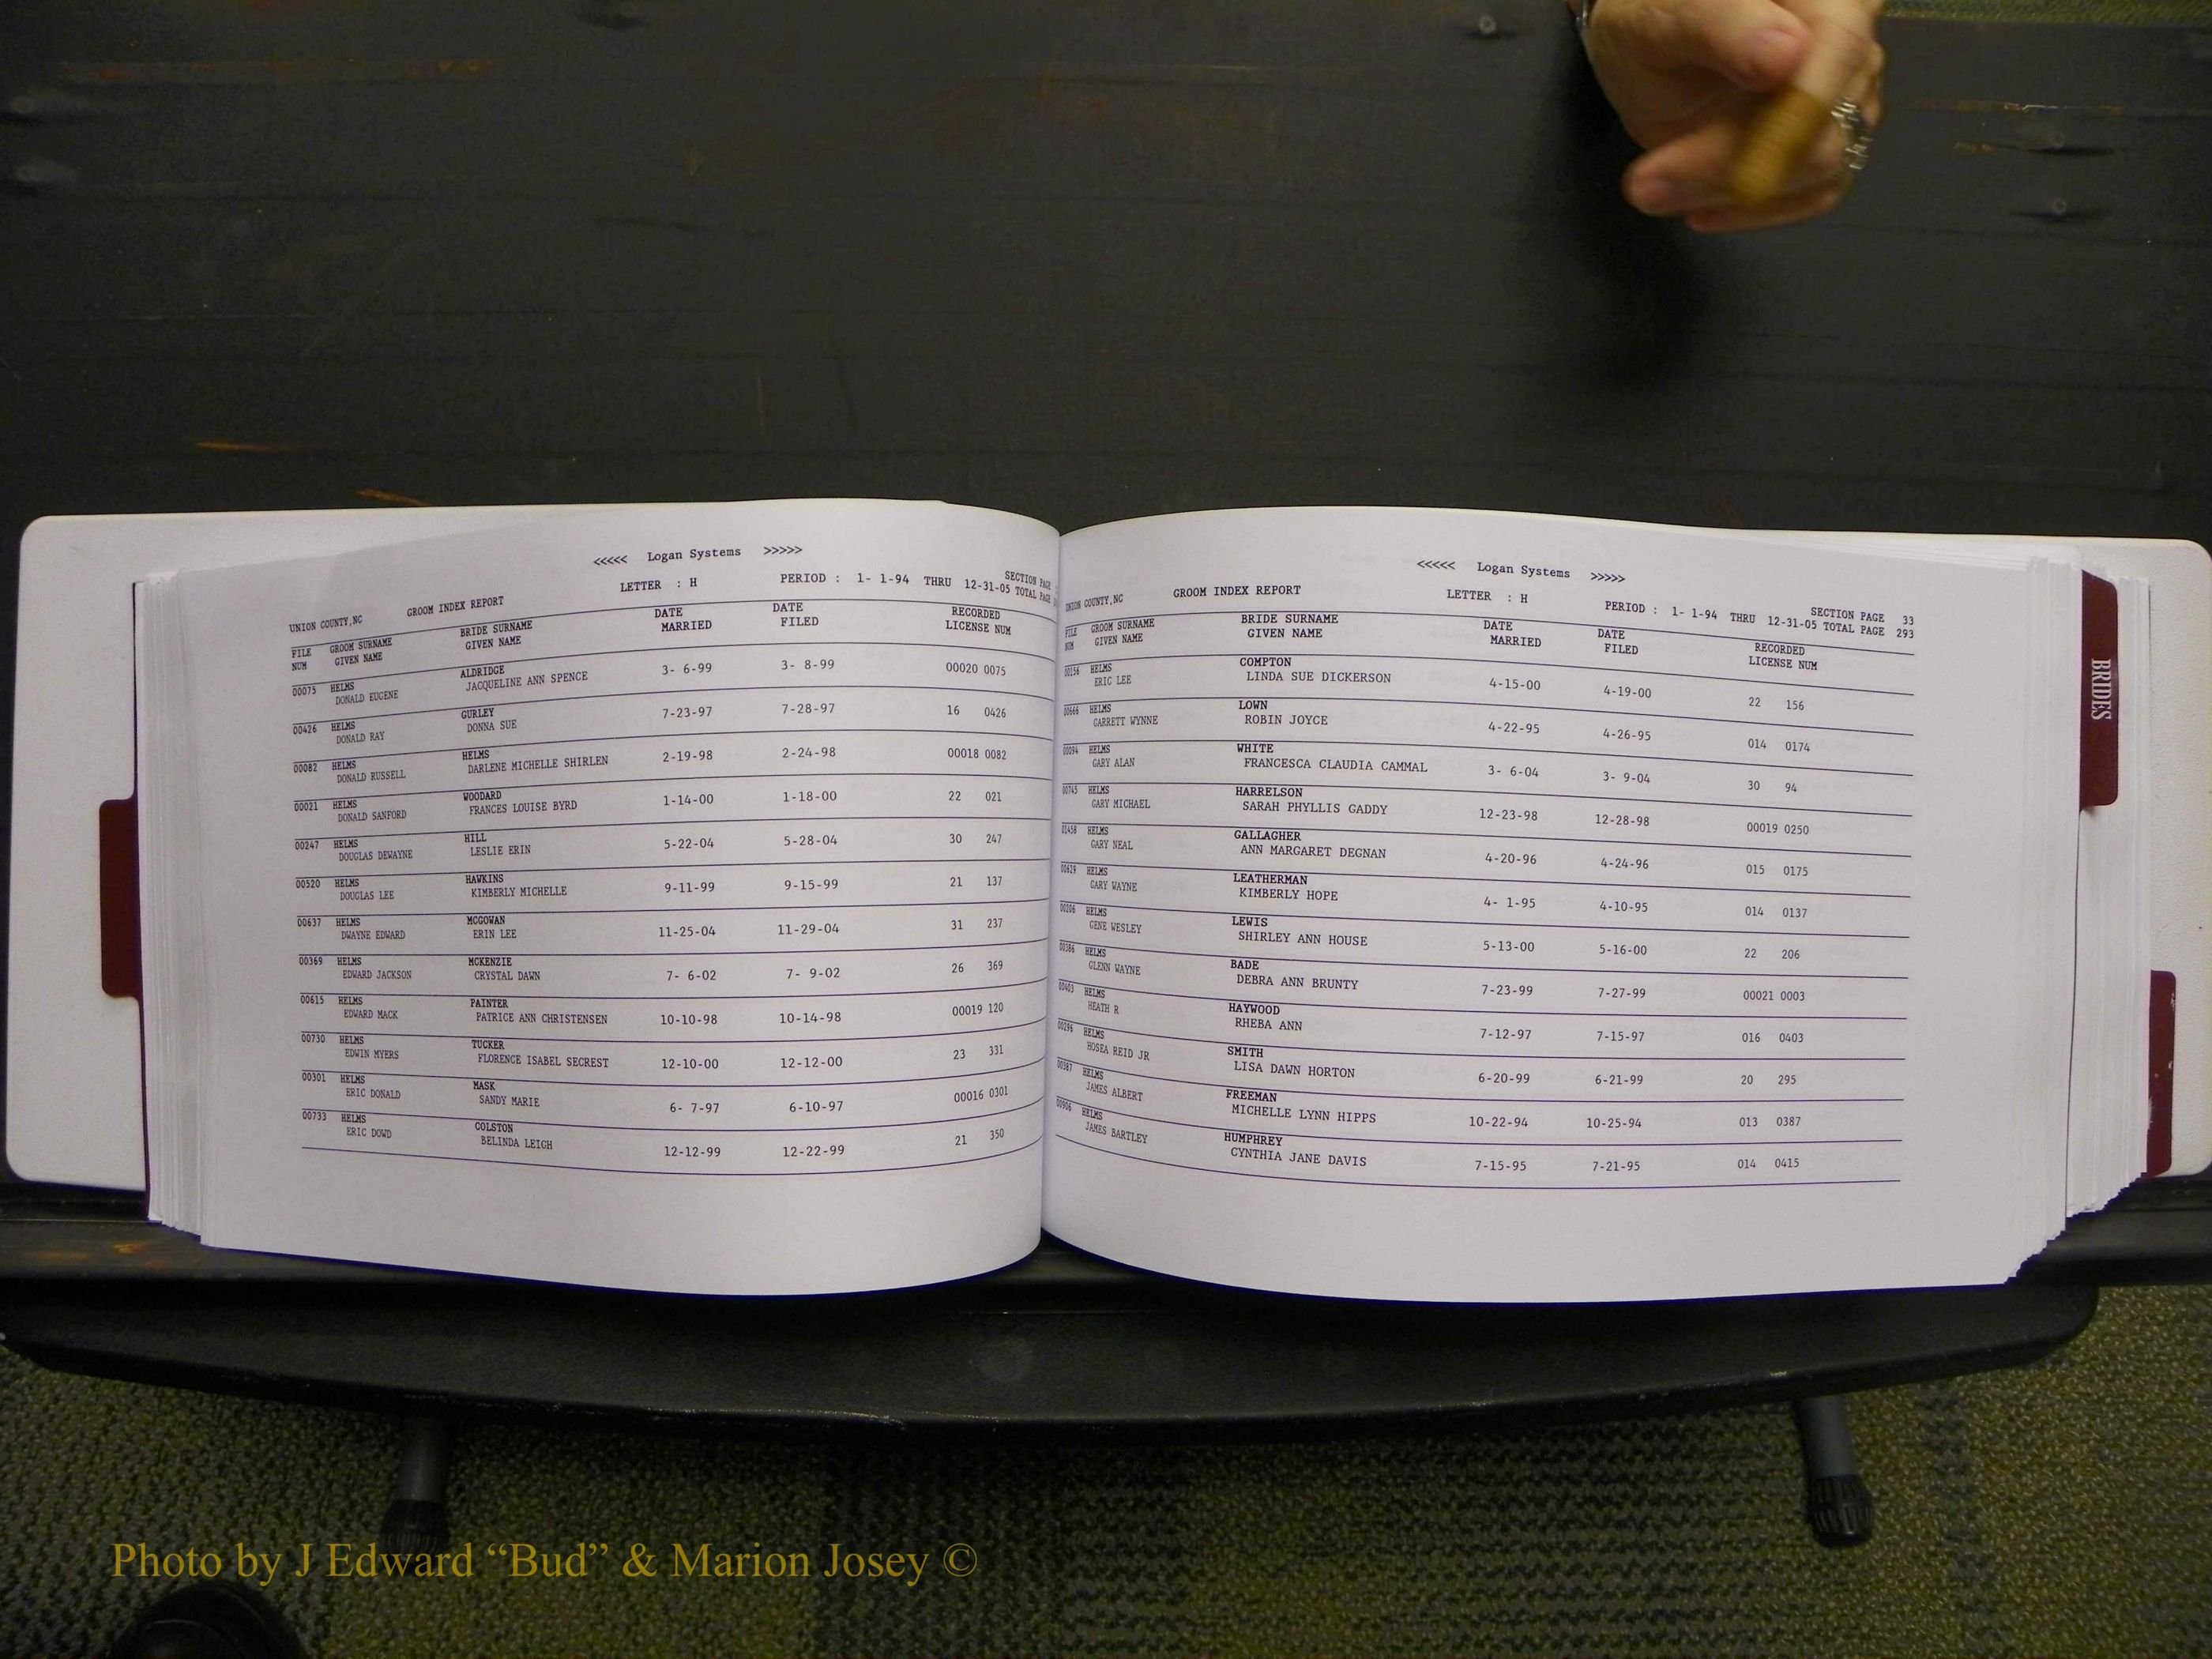 <<<<< Logan Systems >>>>>
UNION COUNTY,NC GROOM INDEX REPORT LETTER : H PERIOD : 1- 1-94 THRU 12-31-05 SECTION PAGE TOTAL PAGE
FILE NUM GROOM SURNAME GIVEN NAME BRIDE SURNAME GIVEN NAME DATE MARRIED DATE FILED RECORDED LICENSE NUM
00075 HELMS ALDRIDGE
DONALD EUGENE JACQUELINE ANN SPENCE 3- 6-99 3- 8-99 00020 0075
00426 HELMS GURLEY
DONALD RAY DONNA SUE 7-23-97 7-28-97 16 0426
00082 HELMS HELMS
DONALD RUSSELL DARLENE MICHELLE SHIRLEN 2-19-98 2-24-98 00018 0082
00021 HELMS WOODARD
DONALD SANFORD FRANCES LOUISE BYRD 1-14-00 1-18-00 22 021
00247 HELMS HILL
DOUGLAS DEWAYNE LESLIE ERIN 5-22-04 5-28-04 30 247
00520 HELMS HAWKINS
DOUGLAS LEE KIMBERLY MICHELLE 9-11-99 9-15-99 21 137
00637 HELMS MCGOWAN
DWAYNE EDWARD ERIN LEE 11-25-04 11-29-04 31 237
00369 HELMS MCKENZIE
EDWARD JACKSON CRYSTAL DAWN 7- 6-02 7- 9-02 26 369
00615 HELMS PAINTER
EDWARD MACK PATRICE ANN CHRISTENSEN 10-10-98 10-14-98 00019 120
00730 HELMS TUCKER
EDWIN MYERS FLORENCE ISABEL SECREST 12-10-00 12-12-00 23 331
00301 HELMS MASK
ERIC DONALD SANDY MARIE 6- 7-97 6-10-97 00016 0301
00733 HELMS COLSTON
ERIC DOWD BELINDA LEIGH 12-12-99 12-22-99 21 350
<<<<< Logan Systems >>>>>
UNION COUNTY,NC GROOM INDEX REPORT LETTER : H PERIOD : 1- 1-94 THRU 12-31-05 SECTION PAGE 33 TOTAL PAGE 293
FILE NUM GROOM SURNAME GIVEN NAME BRIDE SURNAME GIVEN NAME DATE MARRIED DATE FILED RECORDED LICENSE NUM
00156 HELMS COMPTON
ERIC LEE LINDA SUE DICKERSON 4-15-00 4-19-00 22 156
00666 HELMS LOWN
GARRETT WYNNE ROBIN JOYCE 4-22-95 4-26-95 014 0174
00094 HELMS WHITE
GARY ALAN FRANCESCA CLAUDIA CAMMAL 3- 6-04 3- 9-04 30 94
00745 HELMS HARRELSON
GARY MICHAEL SARAH PHYLLIS GADDY 12-23-98 12-28-98 00019 0250
01458 HELMS GALLAGHER
GARY NEAL ANN MARGARET DEGNAN 4-20-96 4-24-96 015 0175
00629 HELMS LEATHERMAN
GARY WAYNE KIMBERLY HOPE 4- 1-95 4-10-95 014 0137
00206 HELMS LEWIS
GENE WESLEY SHIRLEY ANN HOUSE 5-13-00 5-16-00 22 206
00386 HELMS BADE
GLENN WAYNE DEBRA ANN BRUNTY 7-23-99 7-27-99 00021 0003
00403 HELMS HAYWOOD
HEATH R RHEBA ANN 7-12-97 7-15-97 016 0403
00296 HELMS SMITH
HOSEA REID JR LISA DAWN HORTON 6-20-99 6-21-99 20 295
00387 HELMS FREEMAN
JAMES ALBERT MICHELLE LYNN HIPPS 10-22-94 10-25-94 013 0387
00906 HELMS HUMPHREY
JAMES BARTLEY CYNTHIA JANE DAVIS 7-15-95 7-21-95 014 0415
BRIDES
Photo by J Edward “Bud” & Marion Josey ©